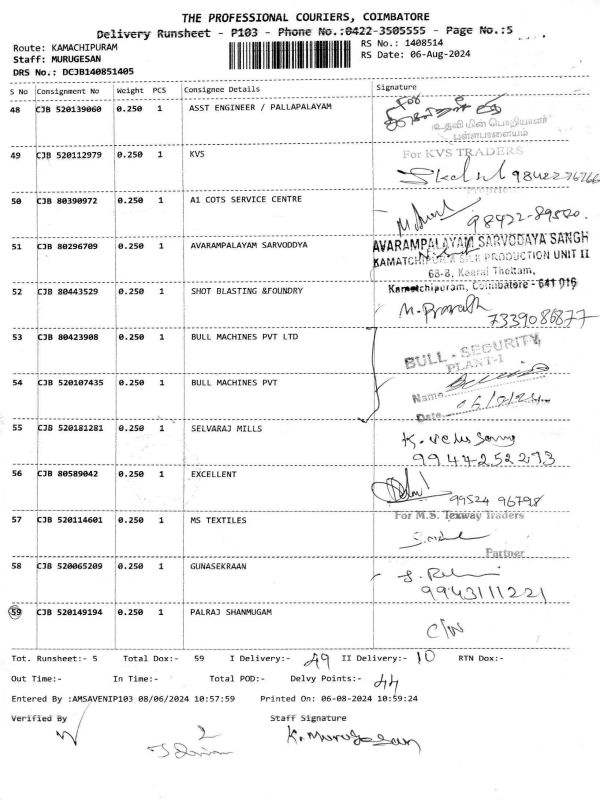 THE PROFESSIONAL COURIERS, COIMBATORE
Delivery Runsheet - P103 - Phone No.:0422-3505555 - Page No.:5
Route: KAMACHIPURAM RS No.: 1408514
Staff: MURUGESAN RS Date: 06-Aug-2024
DRS No.: DCJB140851405
S No Consignment No Weight PCS Consignee Details Signature
48 CJB 520139060 0.250 1 ASST ENGINEER / PALLAPALAYAM For
உதவி மின் பொறியாளர்
பள்ளபாளையம்
49 CJB 520112979 0.250 1 KVS For KVS TRADERS
9842276766
50 CJB 80390972 0.250 1 A1 COTS SERVICE CENTRE
98422-89500.
51 CJB 80296709 0.250 1 AVARAMPALAYAM SARVODDYA AVARAMPALAYAM SARVODAYA SANGH
KAMATCHIPURAM SILK PRODUCTION UNIT II
68-8, Keerai Thottam,
Kamatchipuram, Coimbatore - 641 016
52 CJB 80443529 0.250 1 SHOT BLASTING &FOUNDRY
7339086877
53 CJB 80423908 0.250 1 BULL MACHINES PVT LTD BULL - SECURITY
PLANT-I
54 CJB 520107435 0.250 1 BULL MACHINES PVT Name
Date
55 CJB 520181281 0.250 1 SELVARAJ MILLS K. Velu Samy
9944252273
56 CJB 80589042 0.250 1 EXCELLENT 99524 96798
57 CJB 520114601 0.250 1 MS TEXTILES For M.S. Texway Traders
Partner
58 CJB 520065209 0.250 1 GUNASEKRAAN
9943111221
59 CJB 520149194 0.250 1 PALRAJ SHANMUGAM C/N
Tot. Runsheet:- 5 Total Dox:- 59 I Delivery:- 49 II Delivery:- 10 RTN Dox:-
Out Time:- In Time:- Total POD:- Delvy Points:- 44
Entered By :AMSAVENIP103 08/06/2024 10:57:59 Printed On: 06-08-2024 10:59:24
Verified By Staff Signature
2
K. Murugesan